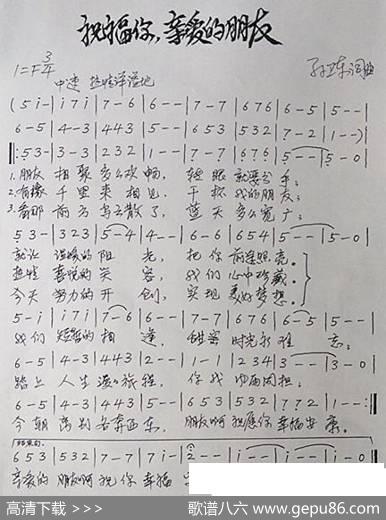 祝福你,亲爱的朋友
1=F 3/4
中速 热情洋溢地
孙卫东词曲
(5 i - | i 7 i | 7 - 6 | 6 - - | 7 - 7 | 6 7 6 | 6 - 5 | 5 - - |
6 - 5 | 4 - 3 | 4 4 3 | 5 - - | 6 5 3 | 5 3 2 | 7 - 2 | 1 - - )|
‖: 5 3 - | 3 - 3 | 2 3 2 | 1 - - | 7 - 7 | 6 7 6 | 5 - - | 5 - 0 |
1.朋友 相聚 多么欢畅, 转眼 就要分手;
2.有缘 千里 来相见, 干杯 我的朋友;
3.看那 前方 乌云散了, 蓝天 多么宽广;
5 3 - | 3 2 3 | 5 - 4 | 4 - - | 6 - 6 | 6 5 4 | 5 - - | 5 - 0 |
就让 温暖的 阳 光, 把你 前程照亮。
热情 喜悦的 笑 容, 我们 心中珍藏。
今天 努力的 开 创, 实现 美好梦想。
5 - i | i 7 i | 7 - 6 | 6 - - | 7 - 7 | 6 7 6 | 6 - 5 | 5 - - |
我们 短暂的 相 逢, 甜蜜 时光永难 忘;
6 - 5 | 4 - 3 | 4 4 3 | 2 - - | 1 - 1 | 2 3 4 | 3 - - | 3 - 0 |
踏上 人生 漫旅程, 你我
6 - 5 | 4 - 3 | 4 4 3 | 5 - - | 6 5 3 | 5 3 2 | 7 7 2 | 1 - - :‖
今朝 离别 各奔西东, 朋友啊 祝愿你 幸福安康。
结束句
6 5 3 | 5 3 2 | 5 5 5 | 7 - i | 2 - - | i - - | i - - | i - - ‖
亲爱的 朋友啊 祝你 幸福
高清下载 >>>
歌谱八六 www.gepu86.com